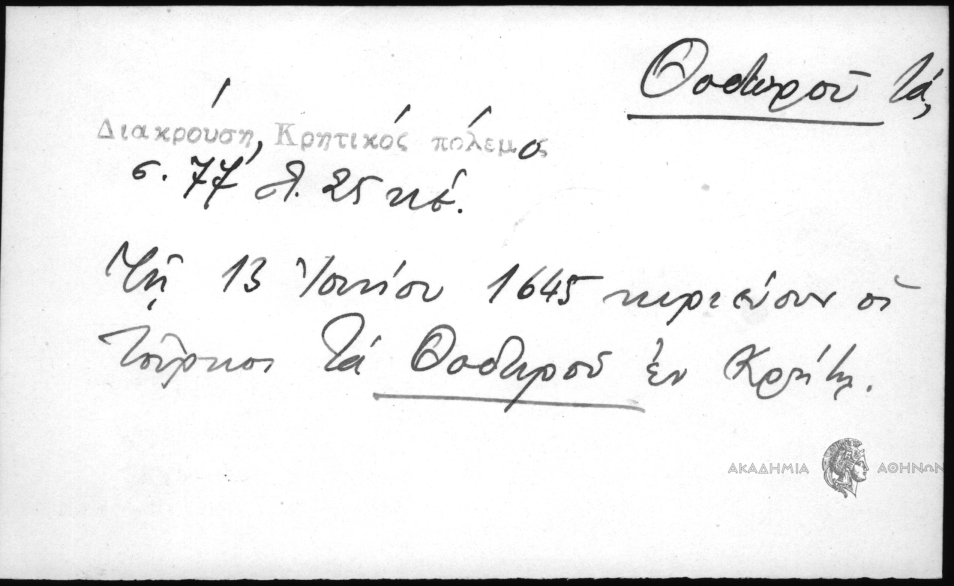 Θοδωροῦ τά,
Διακρούση, Κρητικός πόλεμος
σ. 77 στ. 25 κέ.
Τῇ 13 Ἰουνίου 1645 κυριεύουν οἱ
Τοῦρκοι τά Θοδωροῦ ἐν Κρήτῃ.
ΑΚΑΔΗΜΙΑ ΑΘΗΝΩΝ